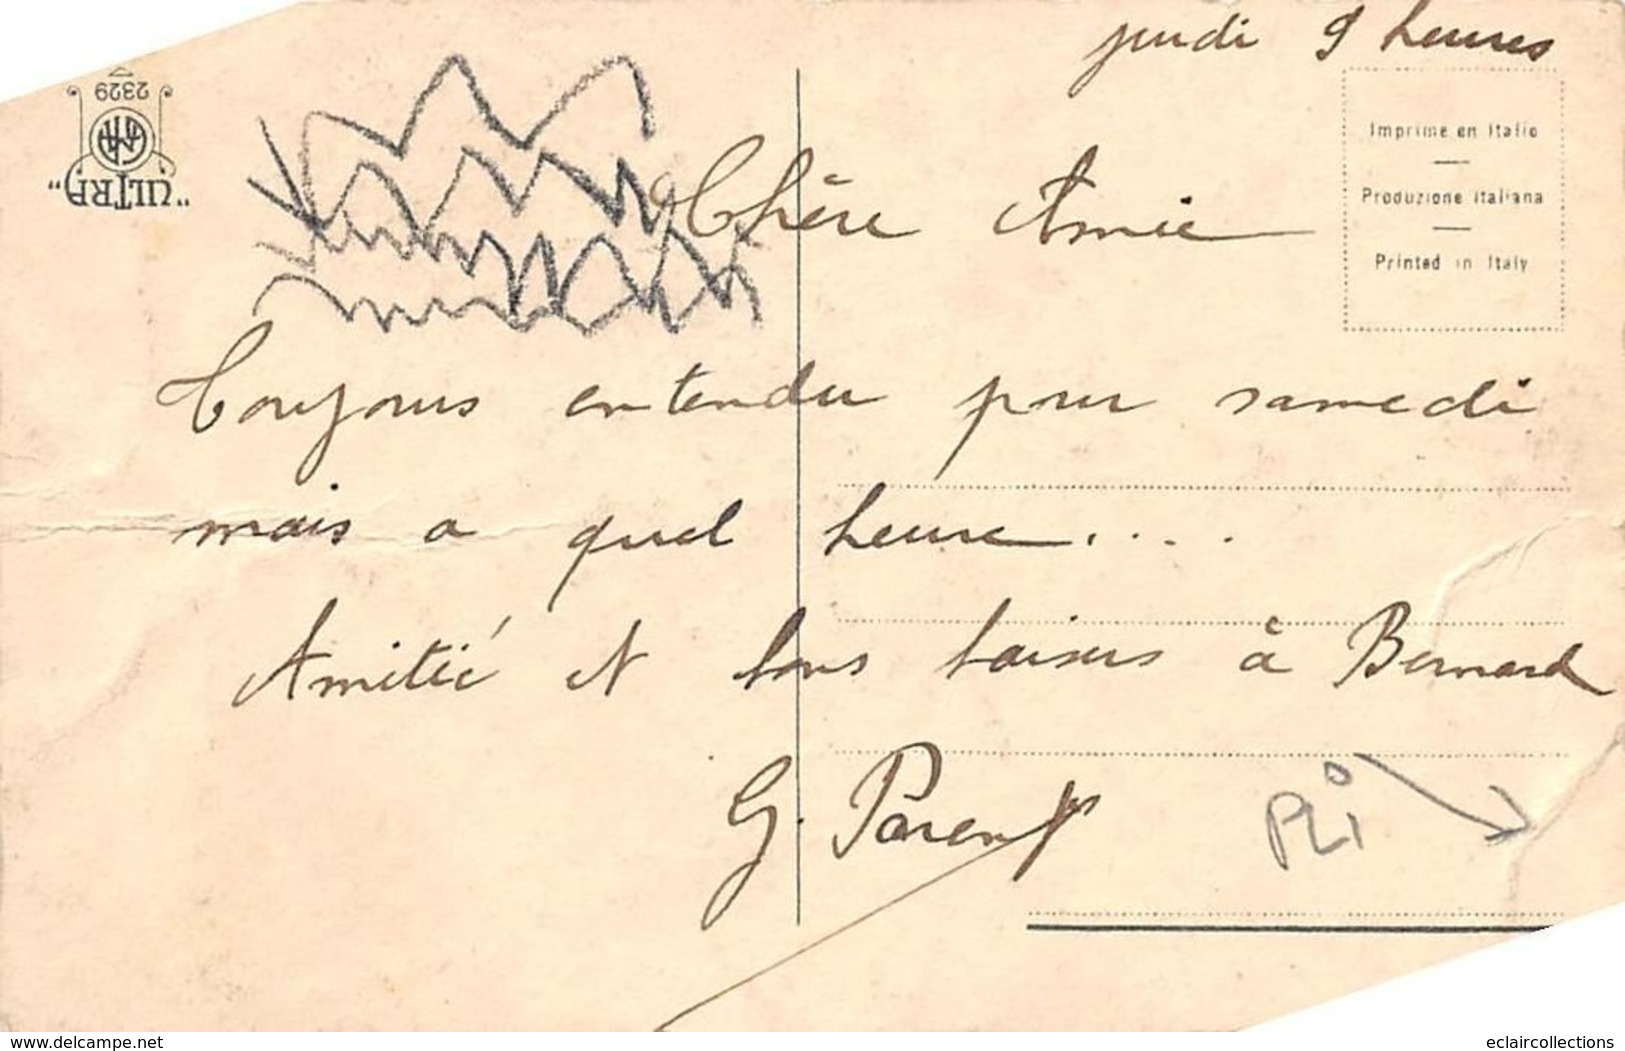 jeudi 9 heures
"ULTRA"
2329
Imprimé en Italie
Produzione italiana
Printed in Italy
Chère Amie
Toujours entendu pour samedi
mais a quel heure....
Amitié et bons baisers à Bernard
G. Parent
PLi
www.delcampe.net
eclaircollections